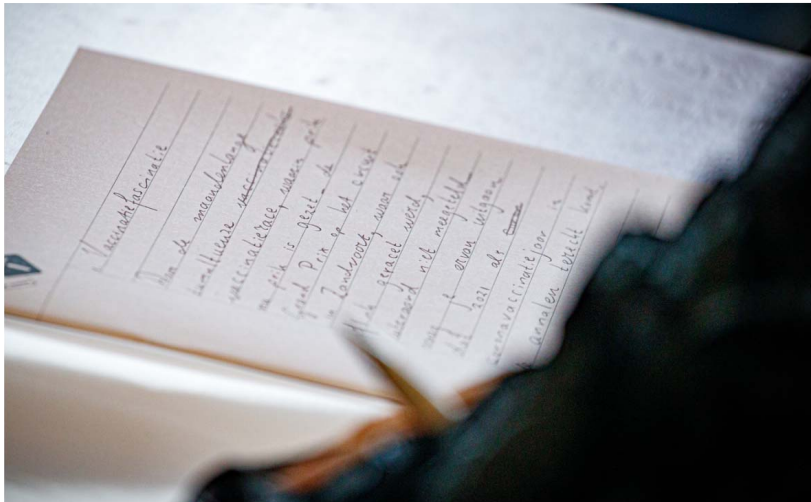 Vaccinatiefascinatie
Door de maandenlange
tumultueuze
vaccinatierace, waarin prik
na prik is gezet – de
Grand Prix op het circuit
in Zandvoort, waar ook
flink geracet werd,
uiteraard niet meegeteld –
mag je ervan uitgaan
dat 2021 als
coronavaccinatiejaar in
annalen terecht komt.